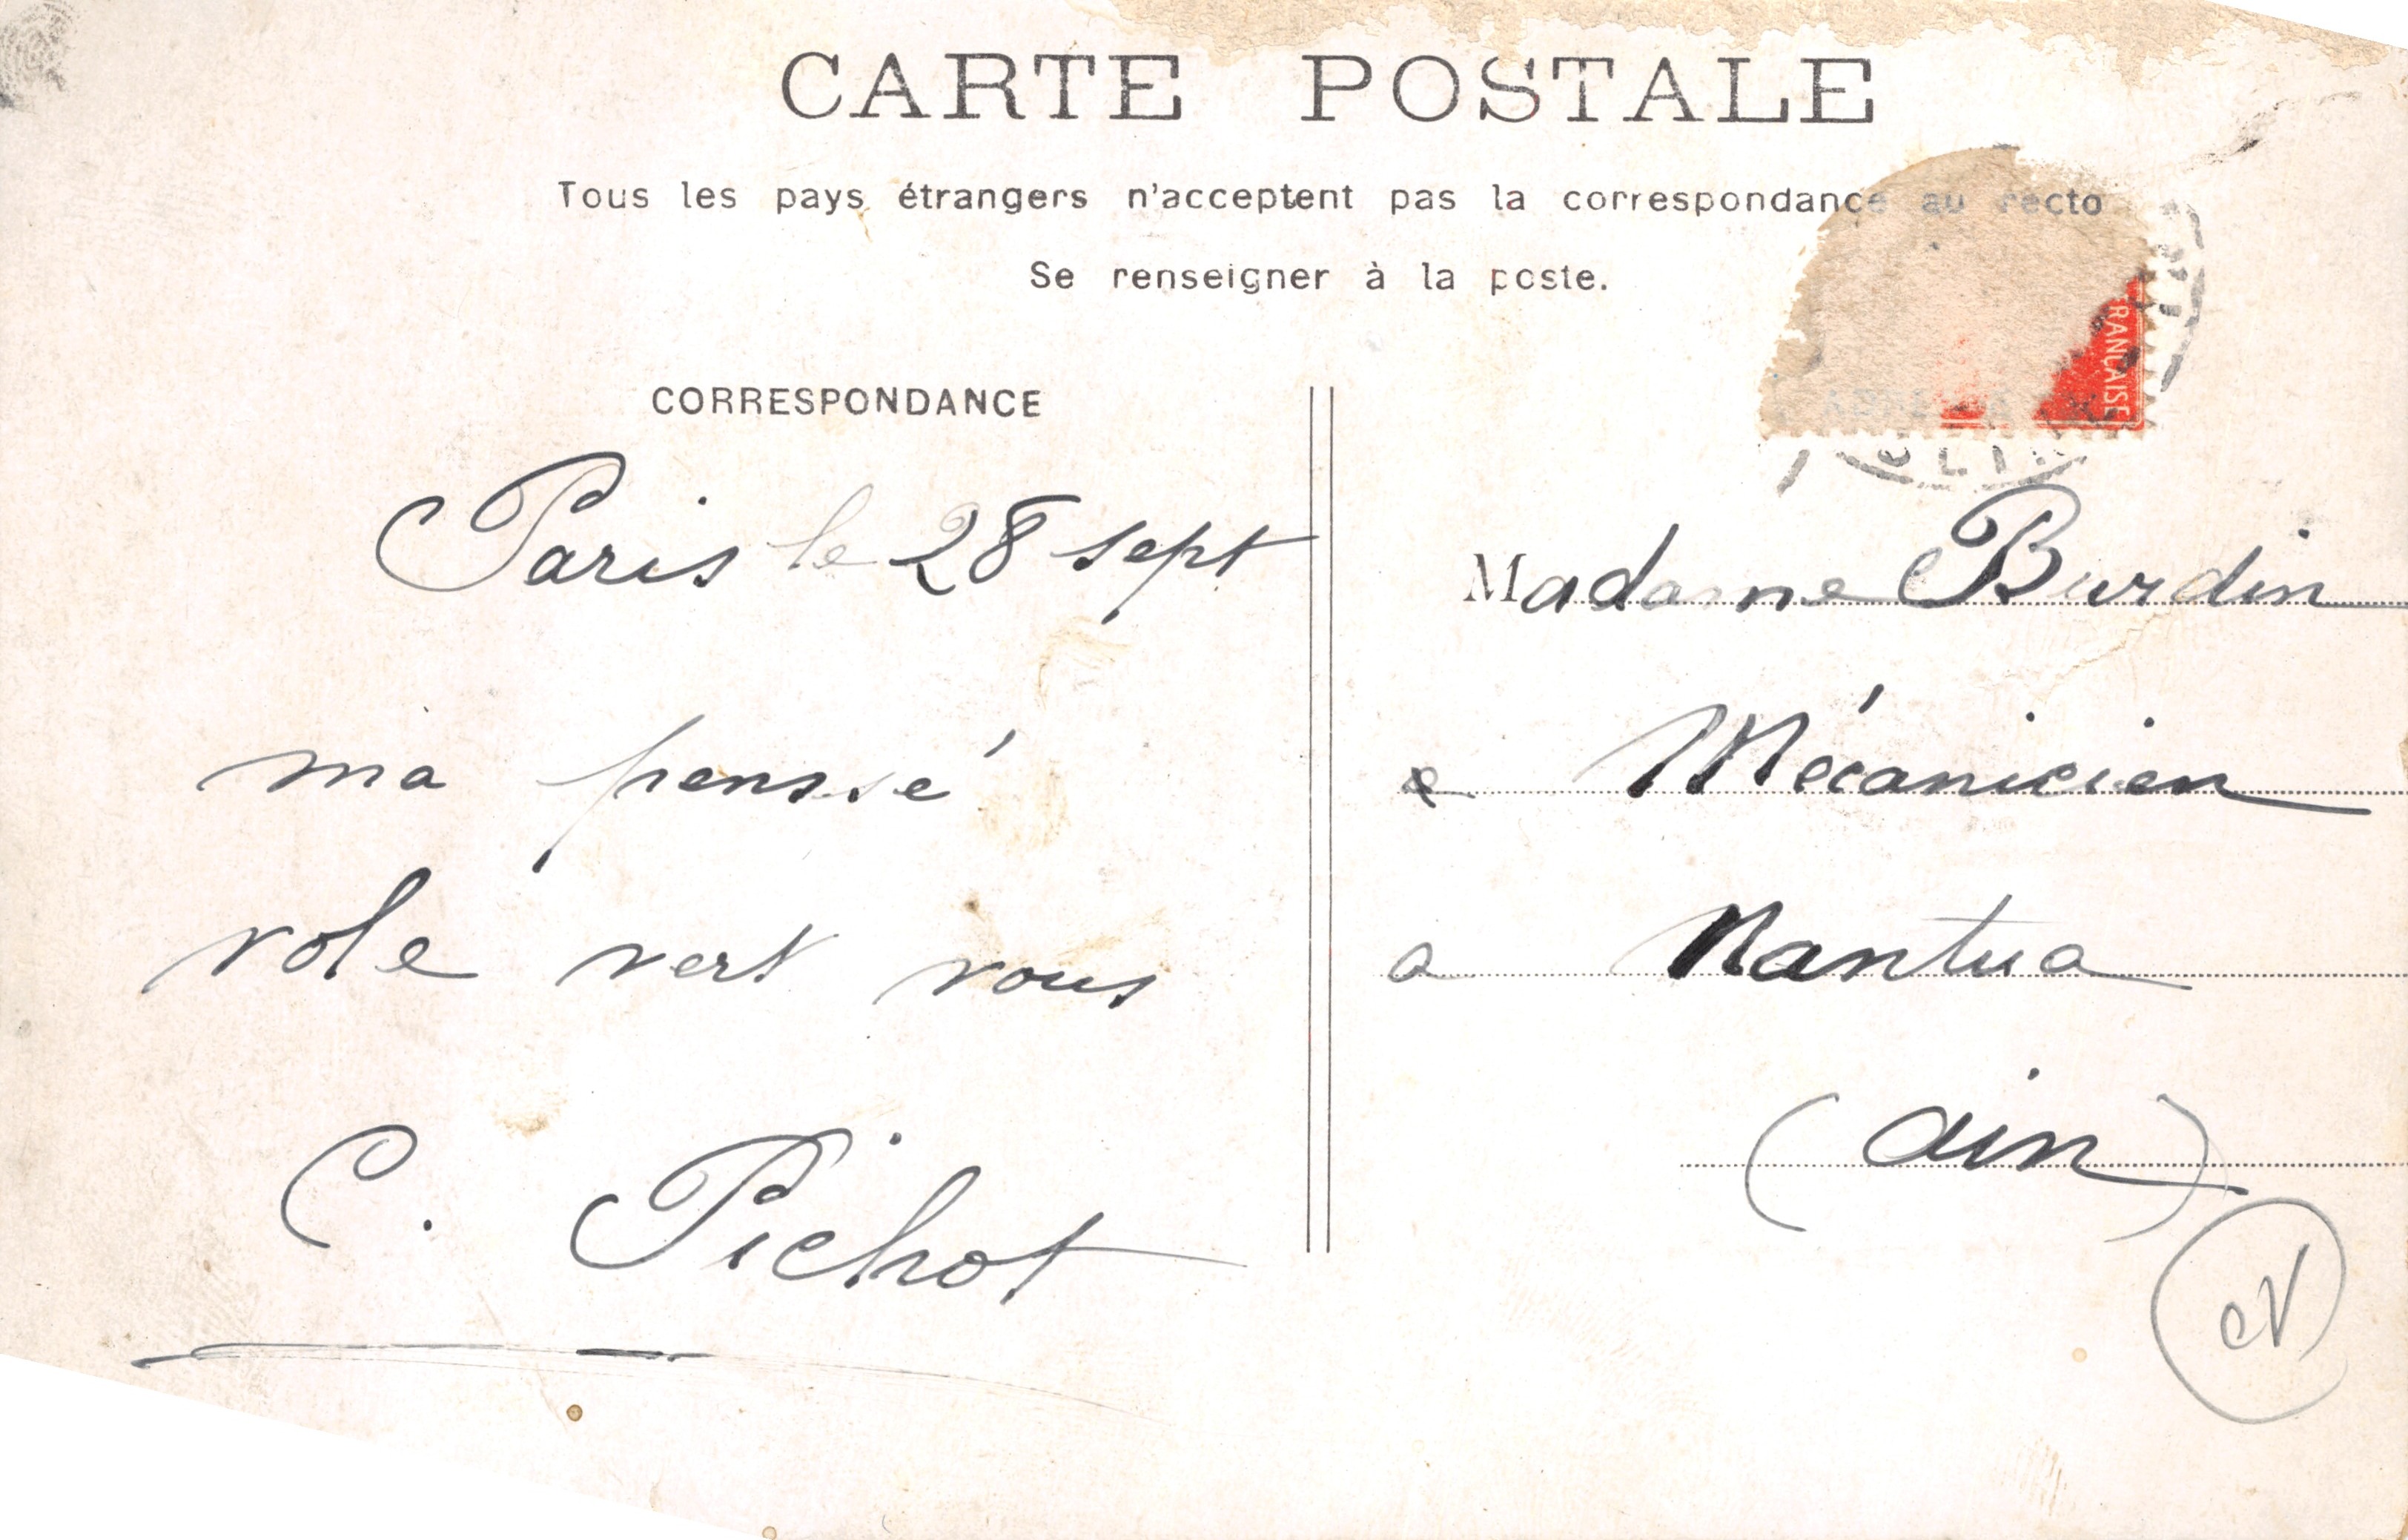 CARTE POSTALE
Tous les pays étrangers n'acceptent pas la correspondance au recto
Se renseigner à la poste.
RANÇAISE
CORRESPONDANCE
Paris le 28 sept
ma pensé
vole vert vous
C. Pichot
Madame Burdin
Mécanicien
a Nantua
(ain)